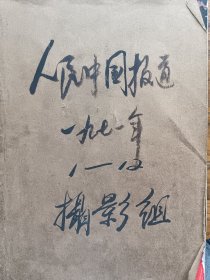 人民中国报道
一九七一年
1—12
摄影组